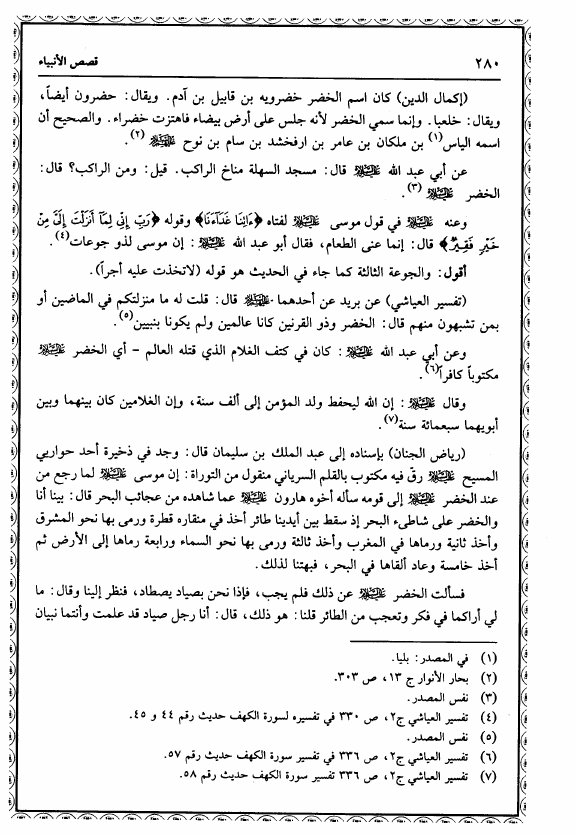 ٢٨٠
قصص الأنبياء
(إكمال الدين) كان اسم الخضر خضرويه بن قابيل بن آدم. ويقال: حضرون أيضاً،
ويقال: خلعبا. وإنما سمي الخضر لأنه جلس على أرض بيضاء فاهتزت خضراء. والصحيح أن
اسمه الياس(١) بن ملكان بن عامر بن ارفخشد بن سام بن نوح عليه السلام(٢).
عن أبي عبد الله عليه السلام قال: مسجد السهلة مناخ الراكب. قيل: ومن الراكب؟ قال:
الخضر عليه السلام(٣).
وعنه عليه السلام في قول موسى عليه السلام لفتاه ﴿ءَاتِنَا غَدَآءَنَا﴾ وقوله ﴿رَبِّ إِنِّي لِمَآ أَنزَلْتَ إِلَيَّ مِنْ
خَيْرٍ فَقِيرٌ﴾ قال: إنما عنى الطعام، فقال أبو عبد الله عليه السلام: إن موسى لذو جوعات(٤).
أقول: والجوعة الثالثة كما جاء في الحديث هو قوله (لاتخذت عليه أجراً).
(تفسير العياشي) عن بريد عن أحدهما عليه السلام قال: قلت له ما منزلتكم في الماضين أو
بمن تشبهون منهم قال: الخضر وذو القرنين كانا عالمين ولم يكونا بنبيين(٥).
وعن أبي عبد الله عليه السلام: كان في كتف الغلام الذي قتله العالم - أي الخضر عليه السلام
مكتوباً كافراً(٦).
وقال عليه السلام: إن الله ليحفظ ولد المؤمن إلى ألف سنة، وإن الغلامين كان بينهما وبين
أبويهما سبعمائة سنة(٧).
(رياض الجنان) بإسناده إلى عبد الملك بن سليمان قال: وجد في ذخيرة أحد حواريي
المسيح عليه السلام رقّ فيه مكتوب بالقلم السرياني منقول من التوراة: إن موسى عليه السلام لما رجع من
عند الخضر عليه السلام إلى قومه سأله أخوه هارون عليه السلام عما شاهده من عجائب البحر قال: بينا أنا
والخضر على شاطىء البحر إذ سقط بين أيدينا طائر أخذ في منقاره قطرة ورمى بها نحو المشرق
وأخذ ثانية ورماها في المغرب وأخذ ثالثة ورمى بها نحو السماء ورابعة رماها إلى الأرض ثم
أخذ خامسة وعاد ألقاها في البحر، فبهتنا لذلك.
فسألت الخضر عليه السلام عن ذلك فلم يجب، فإذا نحن بصياد يصطاد، فنظر إلينا وقال: ما
لي أراكما في فكر وتعجب من الطائر قلنا: هو ذلك، قال: أنا رجل صياد قد علمت وأنتما نبيان
(١) في المصدر: بليا.
(٢) بحار الأنوار ج ١٣، ص ٣٠٣.
(٣) نفس المصدر.
(٤) تفسير العياشي ج٢، ص ٣٣٠ في تفسيره لسورة الكهف حديث رقم ٤٤ و ٤٥.
(٥) نفس المصدر.
(٦) تفسير العياشي ج٢، ص ٣٣٦ في تفسير سورة الكهف حديث رقم ٥٧.
(٧) تفسير العياشي ج٢، ص ٣٣٦ تفسير سورة الكهف حديث رقم ٥٨.